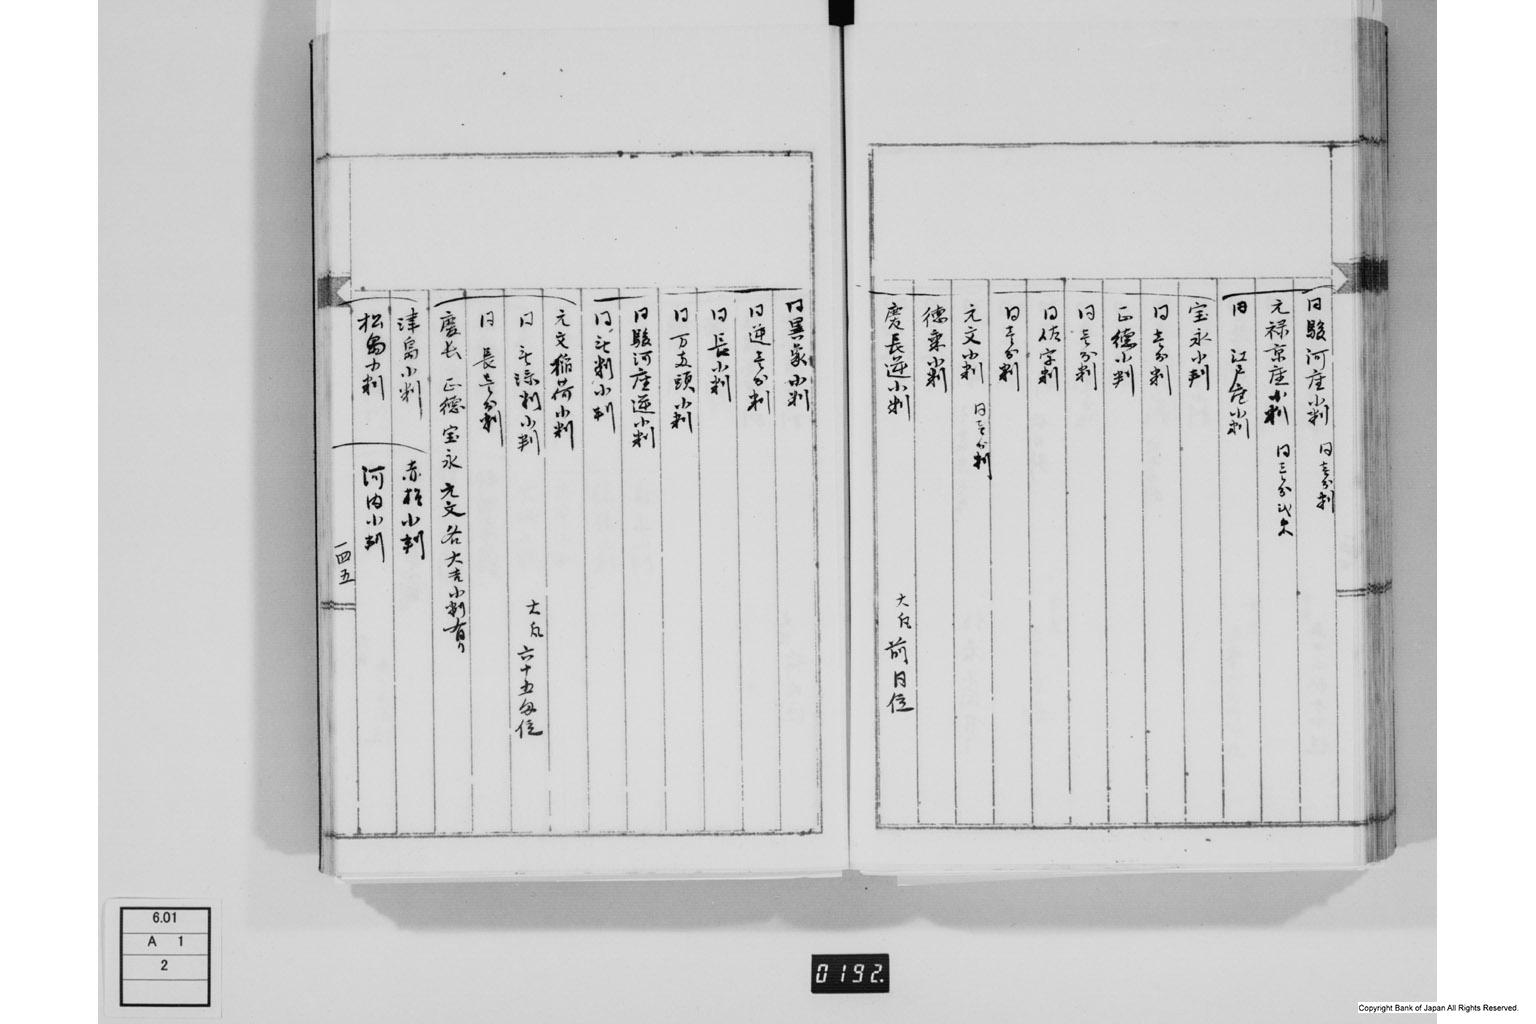 同駿河座小判 同壱分判
元禄京座小判 同三分
同 江戸座小判
宝永小判
同壱分判
正徳小判
同壱分判
同佐字判
同壱分判
元文小判 同壱分判
徳乗小判
慶長逆小判 大凡前同位
同異象小判
同逆壱分判
同長小判
同万五頭小判
同駿河座逆小判
同 判小判
元文稲荷小判
同 判小判 大凡六十五匁位
同 長壱分判
慶長 正徳 宝永 元文各大吉小判有り
津島小判 赤穂小判
松島小判 河内小判
一四五
6.01
A 1
2
0192.
Copyright Bank of Japan All Rights Reserved.